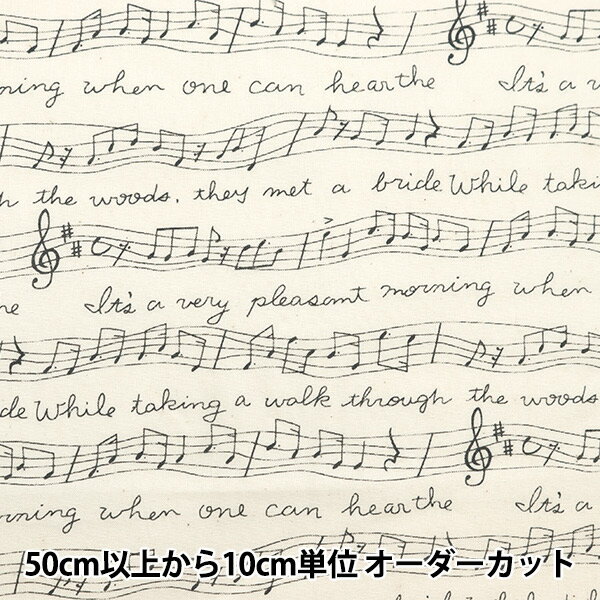 rning when one can hearthe It's a v
h the woods. they met a bride While taki
the It's a very pleasant morning when
de While taking a walk through the woods
rning when one can hearthe It's a
50cm以上から10cm単位 オーダーカット